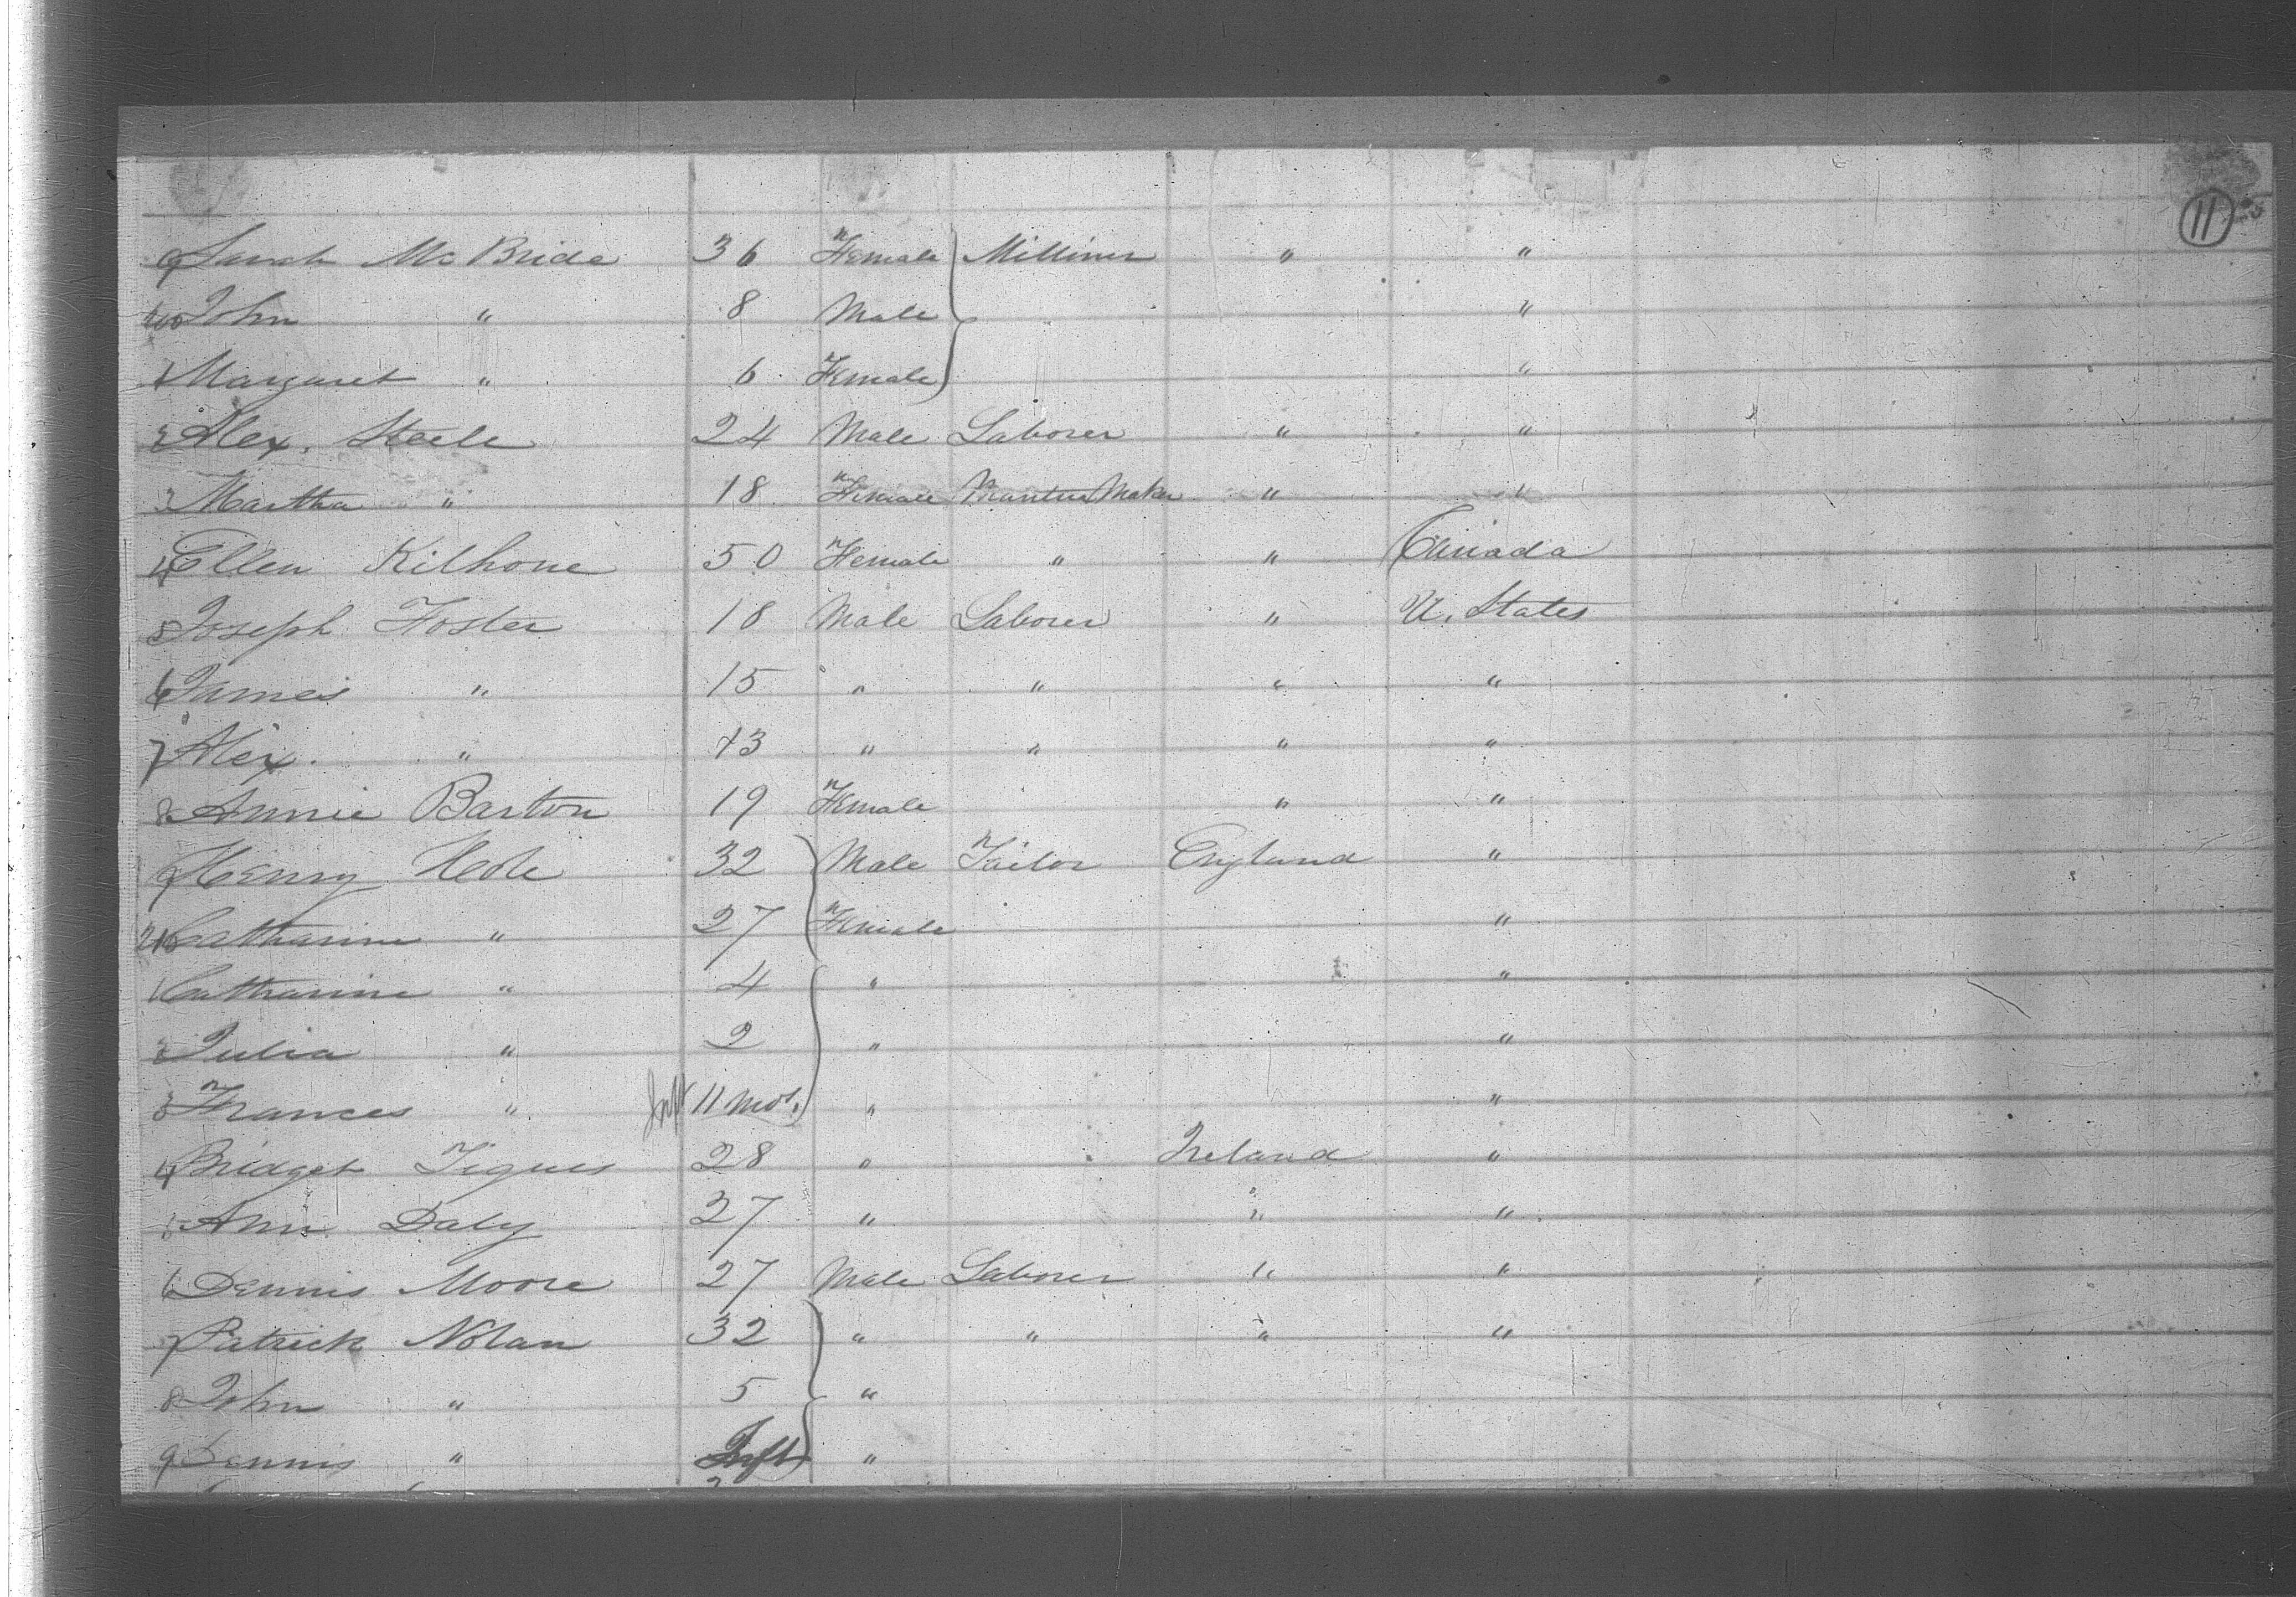 11
9 Sarah McBride 36 Female Milliner " "
400 John " 8 Male "
1 Margaret " 6 Female "
2 Alex. Steele 24 Male Laborer " "
3 Martha " 18 Female Mantua Maker " "
4 Ellen Kilhone 50 Female " " Canada
5 Joseph Foster 18 Male Laborer " U. States
6 James " 15 " " " "
7 Alex. " 13 " " " "
8 Annie Barton 19 Female " "
9 Henry 32 Male Tailor England "
Catharine " 27 Female "
1 Catharine " 4 " "
2 Julia " 2 " "
3 Frances " Inft 11 mos. " "
4 Bridget 28 " Ireland "
5 Ann Daly 27 " " "
6 Dennis Moore 27 Male Laborer " "
7 Patrick Nolan 32 " " " "
8 John " 5 "
9 Dennis " Inft "